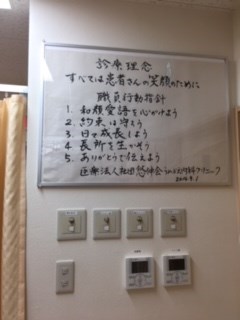 診療理念
すべては患者さんの笑顔のために
職員行動指針
1. 和顔愛語を心がけよう
2. 約束は守ろう
3. 日々成長しよう
4. 長所を生かそう
5. ありがとうを伝えよう
医療法人社団悠伸会